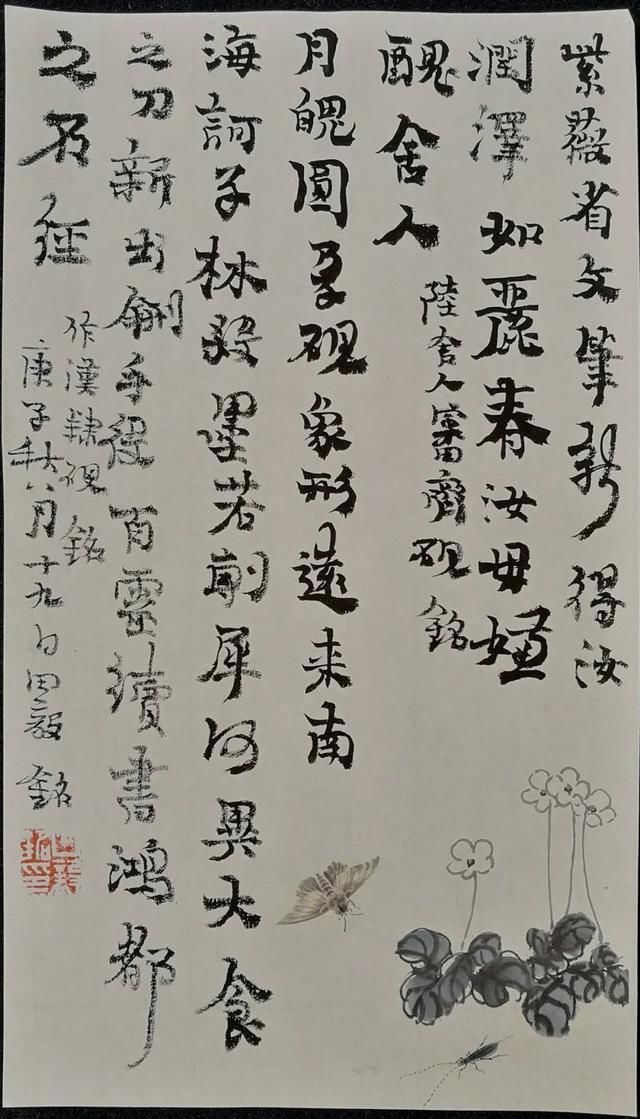 紫薇省文筆新得汝
潤澤如麗春汝毋嫌
醜舍人
陸舍人審齋硯銘
月魄圓孕硯象形遠来南
海訶子林發墨若割犀何異大食
之刀新出硎手百靈續書鴻都
之石經
作漢隸硯銘
庚子秋八月十九日田毅銘